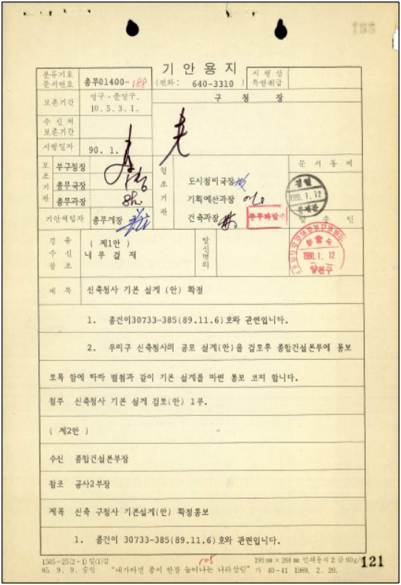 분류기호
문서번호
총무01400-188
기 안 용 지
(전화: 640-3310)
시 행 상
특별취급
보존기간
영구·준영구.
10.5.3.1.
구 청 장
수 신 처
보존기간
시행일자
90.1.
보조기관
부구청장
총무국장
총무과장
협조기관
도시정비국장
기획예산과장
건축과장
문 서 통 제
검열
1990.1.12
기안책임자
총무계장
발 송 인
1990.1.12
경유
수신
참조
(제1안)
내부결재
발신명의
제 목
신축청사 기본 설계 (안) 확정
1. 종건이30733-385(89.11.6)호와 관련입니다.
2. 우리구 신축청사의 공모 설계(안)을 검토후 종합건설본부에 통보
토록 함에 따라 별첨과 같이 기본 설계를 마련 통보 코저 합니다.
첨부 신축청사 기본 설계 검토(안) 1부.
(제2안)
수신 종합건설본부장
참조 공사2부장
제목 신축 구청사 기본설계(안) 확정통보
1. 종건이 30733-385(89.11.6)호와 관련입니다.
1505-25(2-1)일(1)갑
85. 9. 9. 승인
"내가아낀 종이 한장 늘어나는 나라살림"
190㎜×268㎜ 인쇄용지 2급 60g/㎡
가 40-41 1989. 2. 20.
121